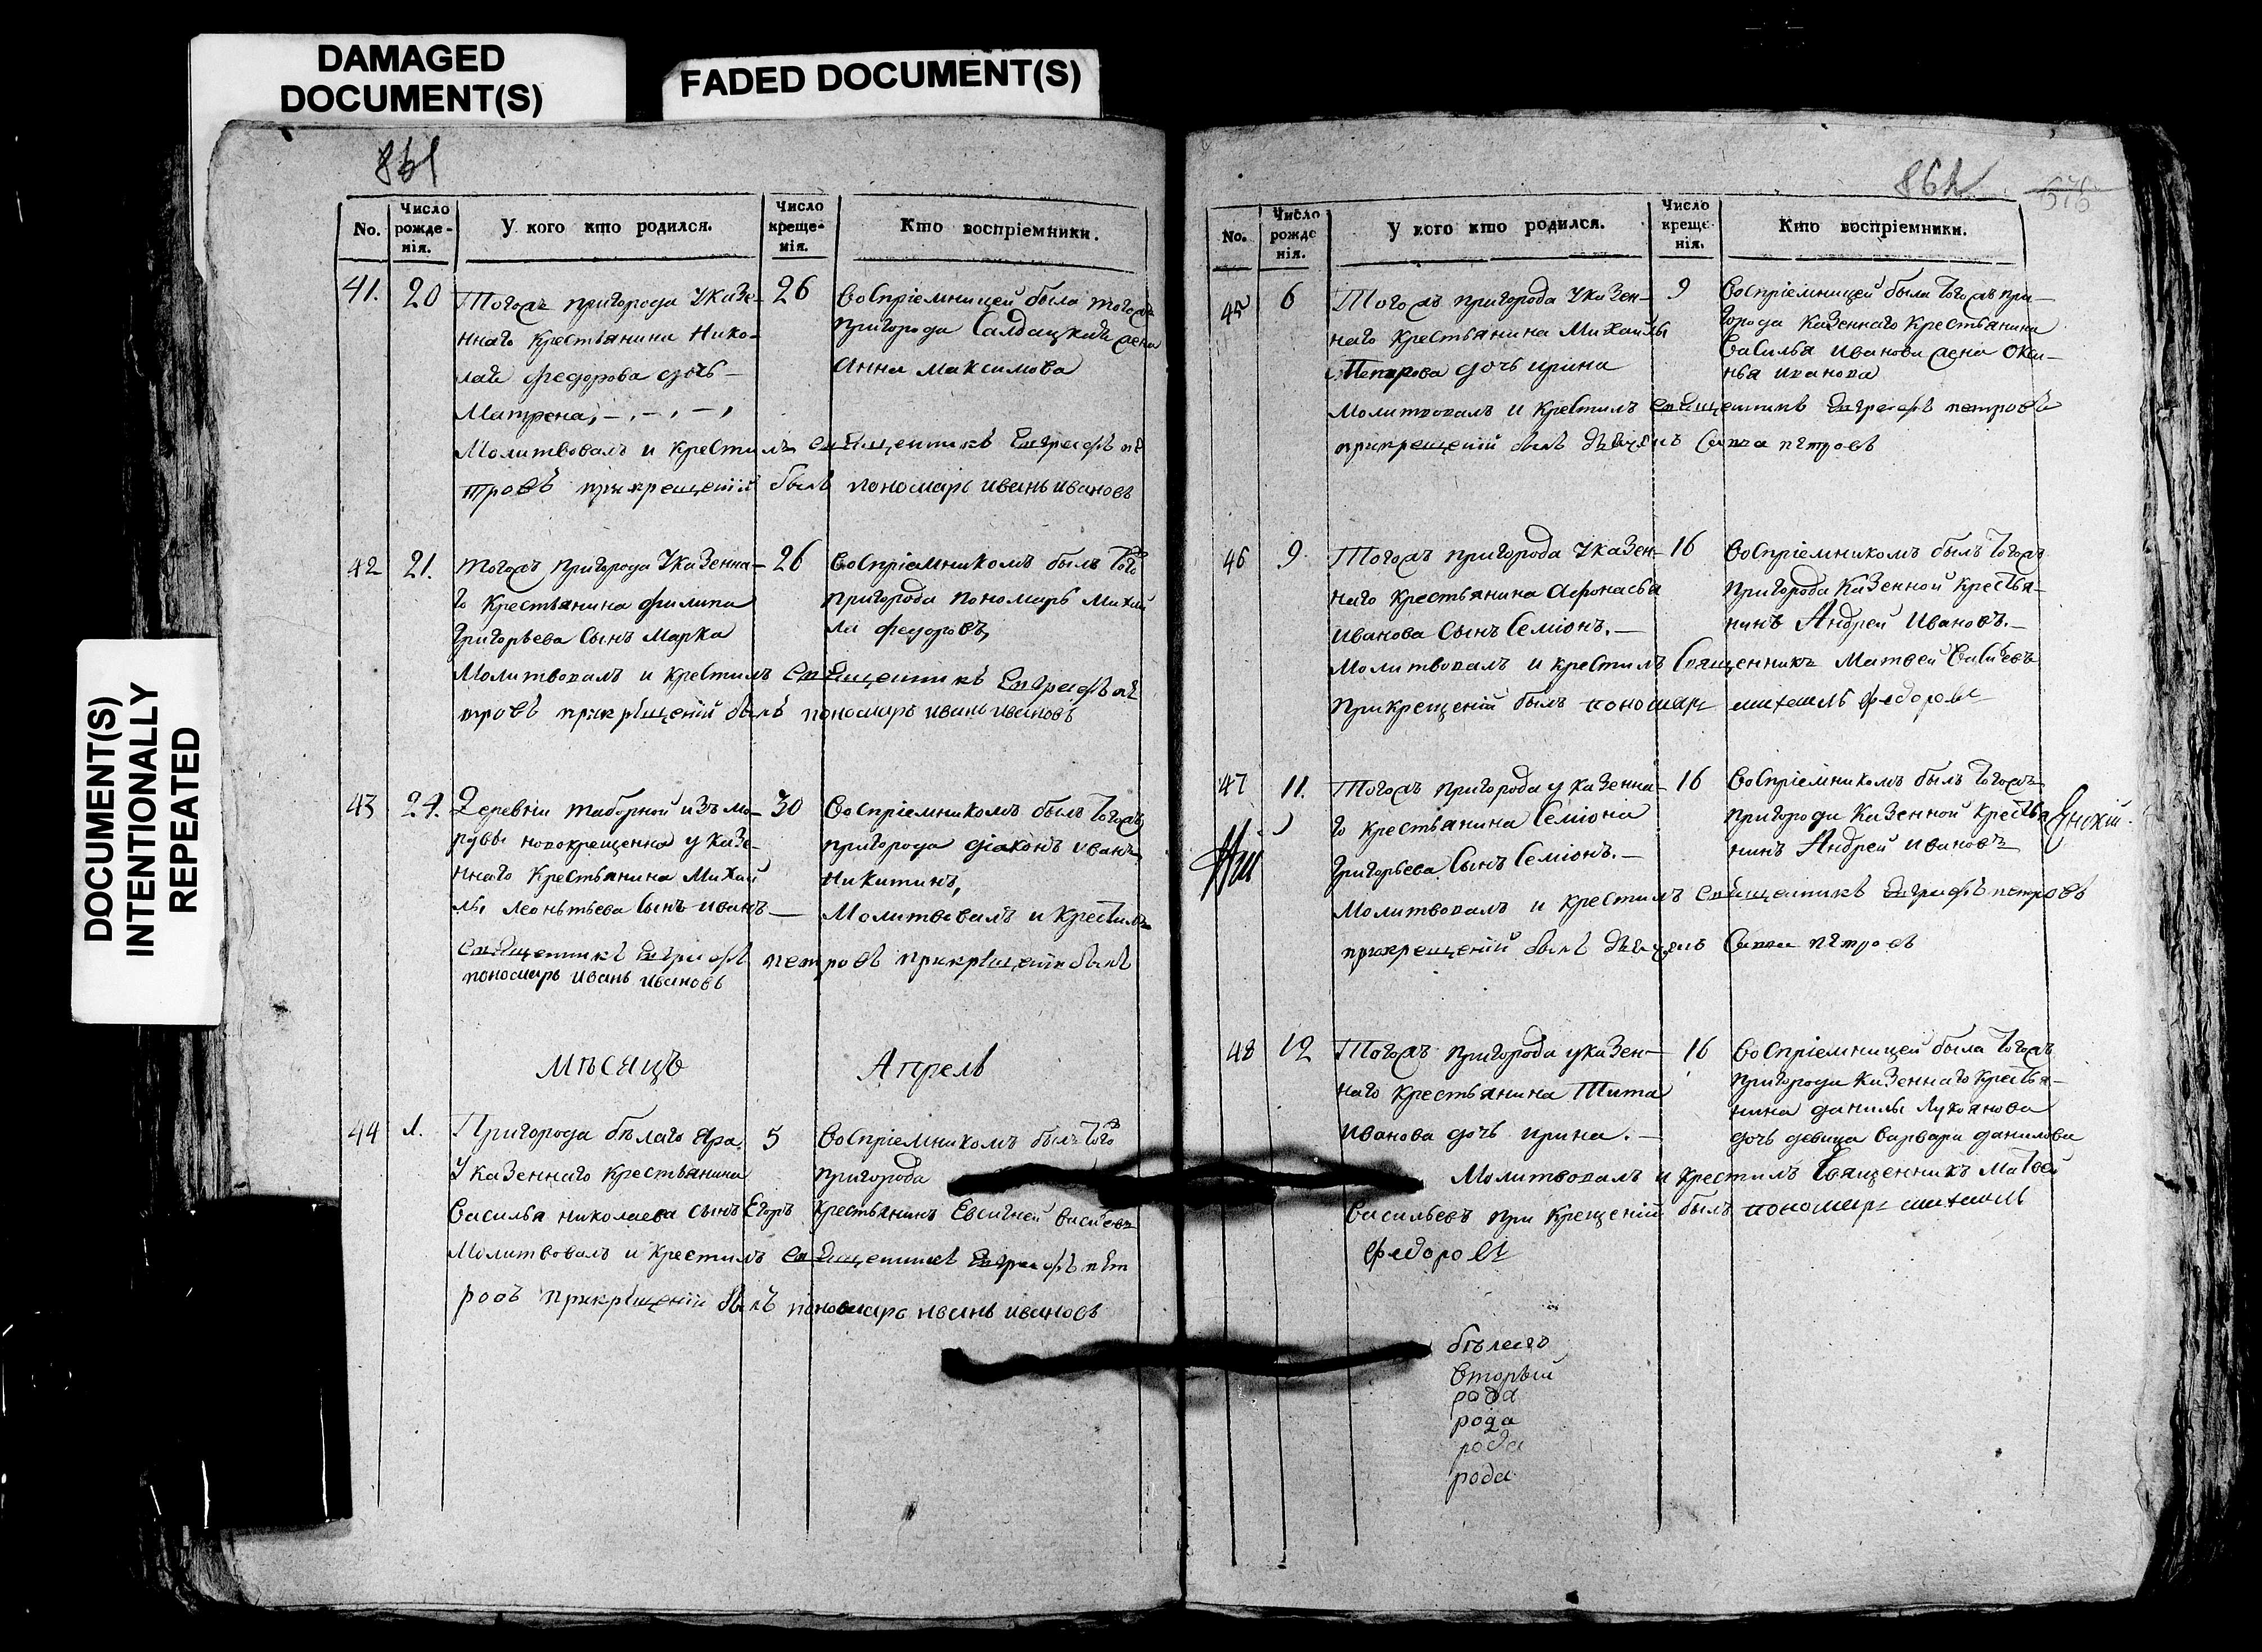 DAMAGED
DOCUMENT(S)
FADED DOCUMENT(S)
DOCUMENT(S)
INTENTIONALLY
REPEATED
861
No.
Число рожде-нія.
У кого кто родился.
Число креще-нія.
Кто воспріемники.
41.
20
Тогожъ пригорода Указе-
ннаго крестьянина Нико-
лая Федорова дочь
Матрена,
26
Воспріемницей была тогожъ
пригорода Салдацкая жена
Анна Максимова
Молитвовалъ и крестилъ священникъ Евграфъ пе
тровъ прикрещеніи былъ пономарь иванъ ивановъ
42
21.
тогожъ пригорода Указенна-
го крестьянина Филипа
Григорьева сынъ Марка
26
Воспріемникомъ былъ того
пригорода пономарь Михай
ла Федоровъ,
Молитвовалъ и крестилъ священникъ Евграфъ пе
тровъ прикрещеніи былъ пономарь иванъ ивановъ
43
24.
Деревни таборной изъ мо-
рдвы новокрещенна у казе-
ннаго крестьянина Михай
лы леонтьева сынъ иванъ
30
Воспріемникомъ былъ тогожъ
пригорода діаконъ иванъ
Никитинъ,
Молитвовалъ и крестилъ
священникъ Евграфъ петровъ прикрещеніи былъ
пономарь иванъ ивановъ
мѣсяцъ Апрель
44
1.
Пригорода бѣлаго Яра
Указеннаго крестьянина
Василья николаева сынъ Егоръ
5
Воспріемникомъ былъ того
пригорода
крестьянинъ Евсигней васильевъ
Молитвовалъ и крестилъ священникъ Евграфъ пет
ровъ прикрещеніи былъ пономарь иванъ ивановъ
862
No.
Число рожде нія.
У кого кто родился.
Число креще-нія.
Кто воспріемники.
45
6
Тогожъ пригорода Указен-
наго крестьянина Михайлы
Петрова дочь ирина
9
Воспріемницей была тогожъ при-
города казеннаго крестьянина
Василья иванова жена окси-
нья иванова
Молитвовалъ и крестилъ священникъ Евграфъ петровъ
прикрещеніи былъ дьячекъ Савва петровъ
46
9.
Тогожъ пригорода Указен-
наго крестьянина Афонасья
Иванова сынъ Семіонъ.
16
Воспріемникомъ былъ тогожъ
пригорода казенной крестья-
нинъ Андрей Ивановъ.
Молитвовалъ и крестилъ Священникъ Матвей Васильевъ
Прикрещеніи былъ пономарь михаилъ федоровъ
47
11.
Тогожъ пригорода у казенна-
го крестьянина Семіона
Григорьева сынъ Семіонъ.
16
Воспріемникомъ былъ тогожъ
пригорода казенной крестья
нинъ Андрей ивановъ
Молитвовалъ и крестилъ священникъ Евграфъ петровъ
прикрещеніи былъ дьячекъ Савва петровъ
48
12
Тогожъ пригорода указен-
наго крестьянина Тита
Иванова дочь ирина.
16
Воспріемницей была тогожъ
пригорода казеннаго крестья-
нина данилы Лукоянова
дочь девица варвара данилова
Молитвовалъ и крестилъ Священникъ Матвей
Васильевъ при крещеніи былъ пономарь михаилъ
федоровъ
бѣлаго
рода
рода
рода
рода